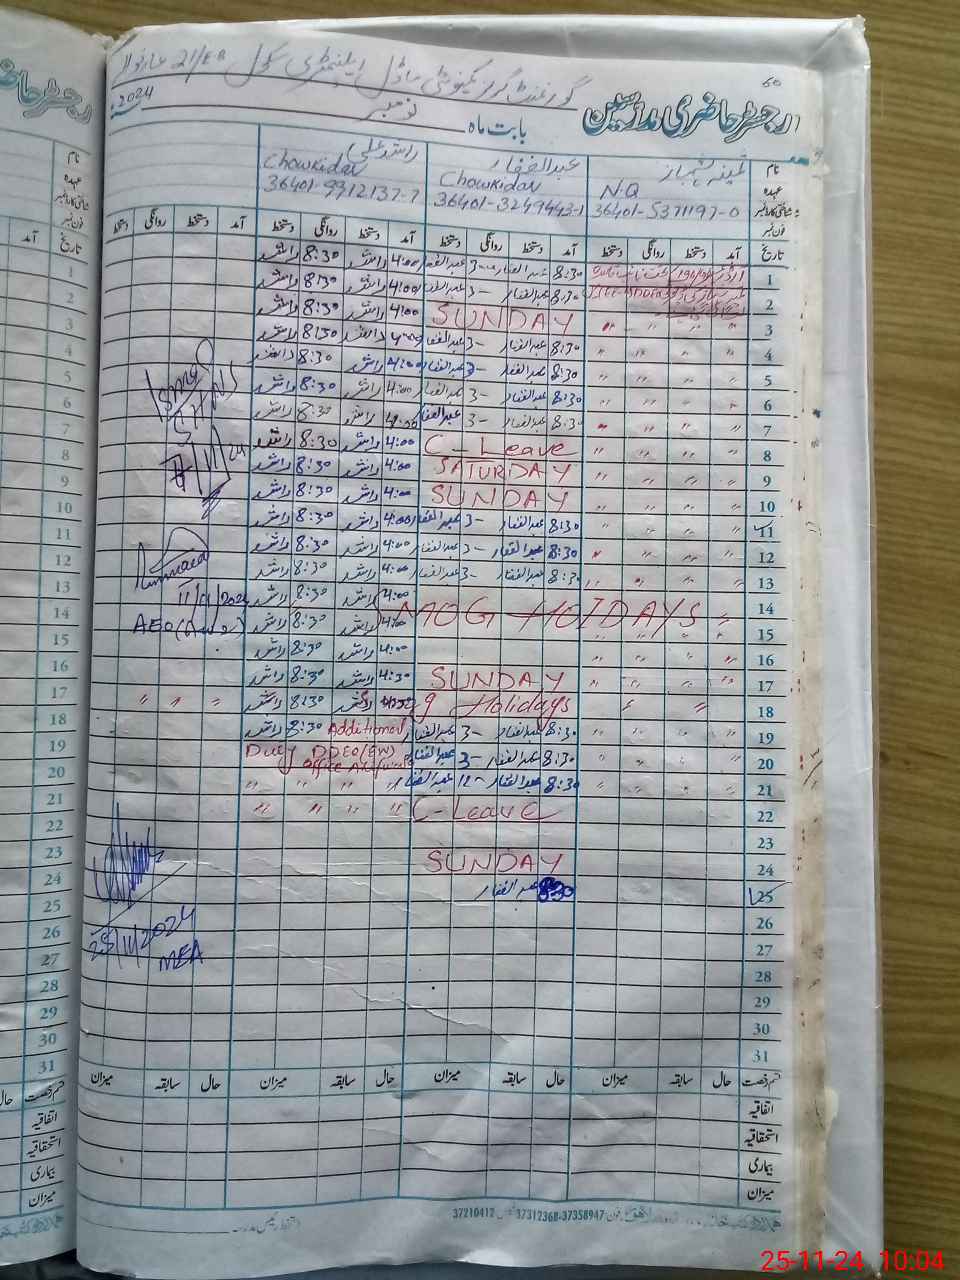 60
گورنمنٹ گرلز کمیونٹی ماڈل ایلیمنٹری سکول 21/E.B
رجسٹر حاضری مدرسین
بابت ماہ نومبر 2024ء
نام
ثمینہ شہباز
عبدالغفار
راشد علی
عہدہ
N.Q
Chowkidar
Chowkidar
شناختی کارڈ نمبر
36401-5371197-0
36401-3249443-1
36401-9912137-7
فون نمبر
تاریخ آمد دستخط روانگی دستخط آمد دستخط روانگی دستخط آمد دستخط روانگی دستخط آمد دستخط روانگی دستخط
1 8:30 عبدالغفار 3 عبدالغفار 4:00 راشد 8:30 راشد
2 8:30 عبدالغفار 3 4:00 راشد 8:30 راشد
3 " " " " SUNDAY 4:00 راشد 8:30 راشد
4 " " " " 8:30 عبدالغفار 3 عبدالغفار 4:00 راشد 8:30 راشد
5 " " " " 8:30 عبدالغفار 3 عبدالغفار 4:00 راشد 8:30 راشد
6 " " " " 8:30 عبدالغفار 3 عبدالغفار 4:00 راشد 8:30 راشد
7 " " " " 8:30 عبدالغفار 3 عبدالغفار 4:00 راشد 8:30 راشد
8 " " " " C-Leave 4:00 راشد 8:30 راشد
9 " " " " SATURDAY 4:00 راشد 8:30 راشد
10 " " " " SUNDAY 4:00 راشد 8:30 راشد
11 " " " " 8:30 عبدالغفار 3 عبدالغفار 4:00 راشد 8:30 راشد
12 " " " " 8:30 عبدالغفار 3 عبدالغفار 4:00 راشد 8:30 راشد
13 " " " " 8:30 عبدالغفار 3 عبدالغفار 4:00 راشد 8:30 راشد
11/11/2024
14 SMOG HOIDAYS 4:00 راشد 8:30 راشد
AEO
15 " " " " 4:00 راشد 8:30 راشد
16 " " " " 4:00 راشد 8:30 راشد
17 " " " " SUNDAY 4:30 راشد 8:30 راشد
18 " " " Holidays راشد 8:30 راشد " " "
19 " " " " 8:30 عبدالغفار 3 عبدالغفار Additional 8:30 راشد
20 " " " " 8:30 عبدالغفار 3 عبدالغفار Duty DDEO(EW)
office
21 " " " " 8:30 عبدالغفار 12 عبدالغفار " " " "
22 C-Leave " " "
23
24 SUNDAY
25 8:30 عبدالغفار
26
25/11/2024
27
MEA
28
29
30
31
قسم رخصت حال سابقہ میزان حال سابقہ میزان حال سابقہ میزان حال سابقہ میزان
اتفاقیہ
استحقاقیہ
بیماری
میزان
37210412 37312368-37358947 فون
نام
عہدہ
شناختی کارڈ نمبر
فون نمبر
تاریخ آمد
1
2
3
4
5
6
7
8
9
10
11
12
13
14
15
16
17
18
19
20
21
22
23
24
25
26
27
28
29
30
31
قسم رخصت حال
اتفاقیہ
استحقاقیہ
بیماری
میزان
25-11-24 10:04